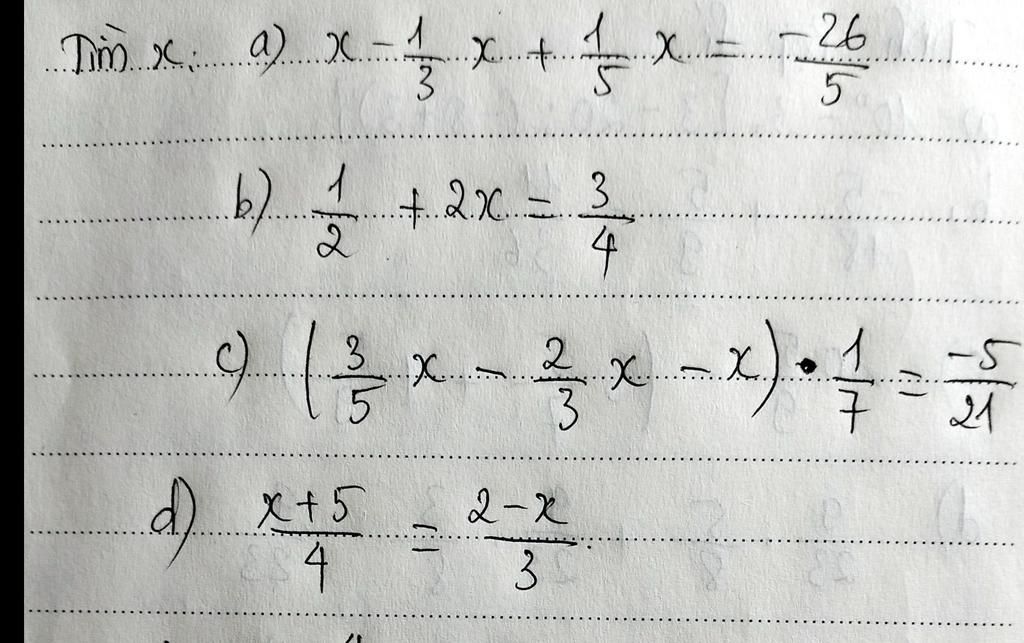 Tìm x: a) x - 1/3 x + 1/5 x = -26/5
b) 1/2 + 2x = 3/4
c) (3/5 x - 2/3 x - x) • 1/7 = -5/21
d) x+5/4 = 2-x/3.